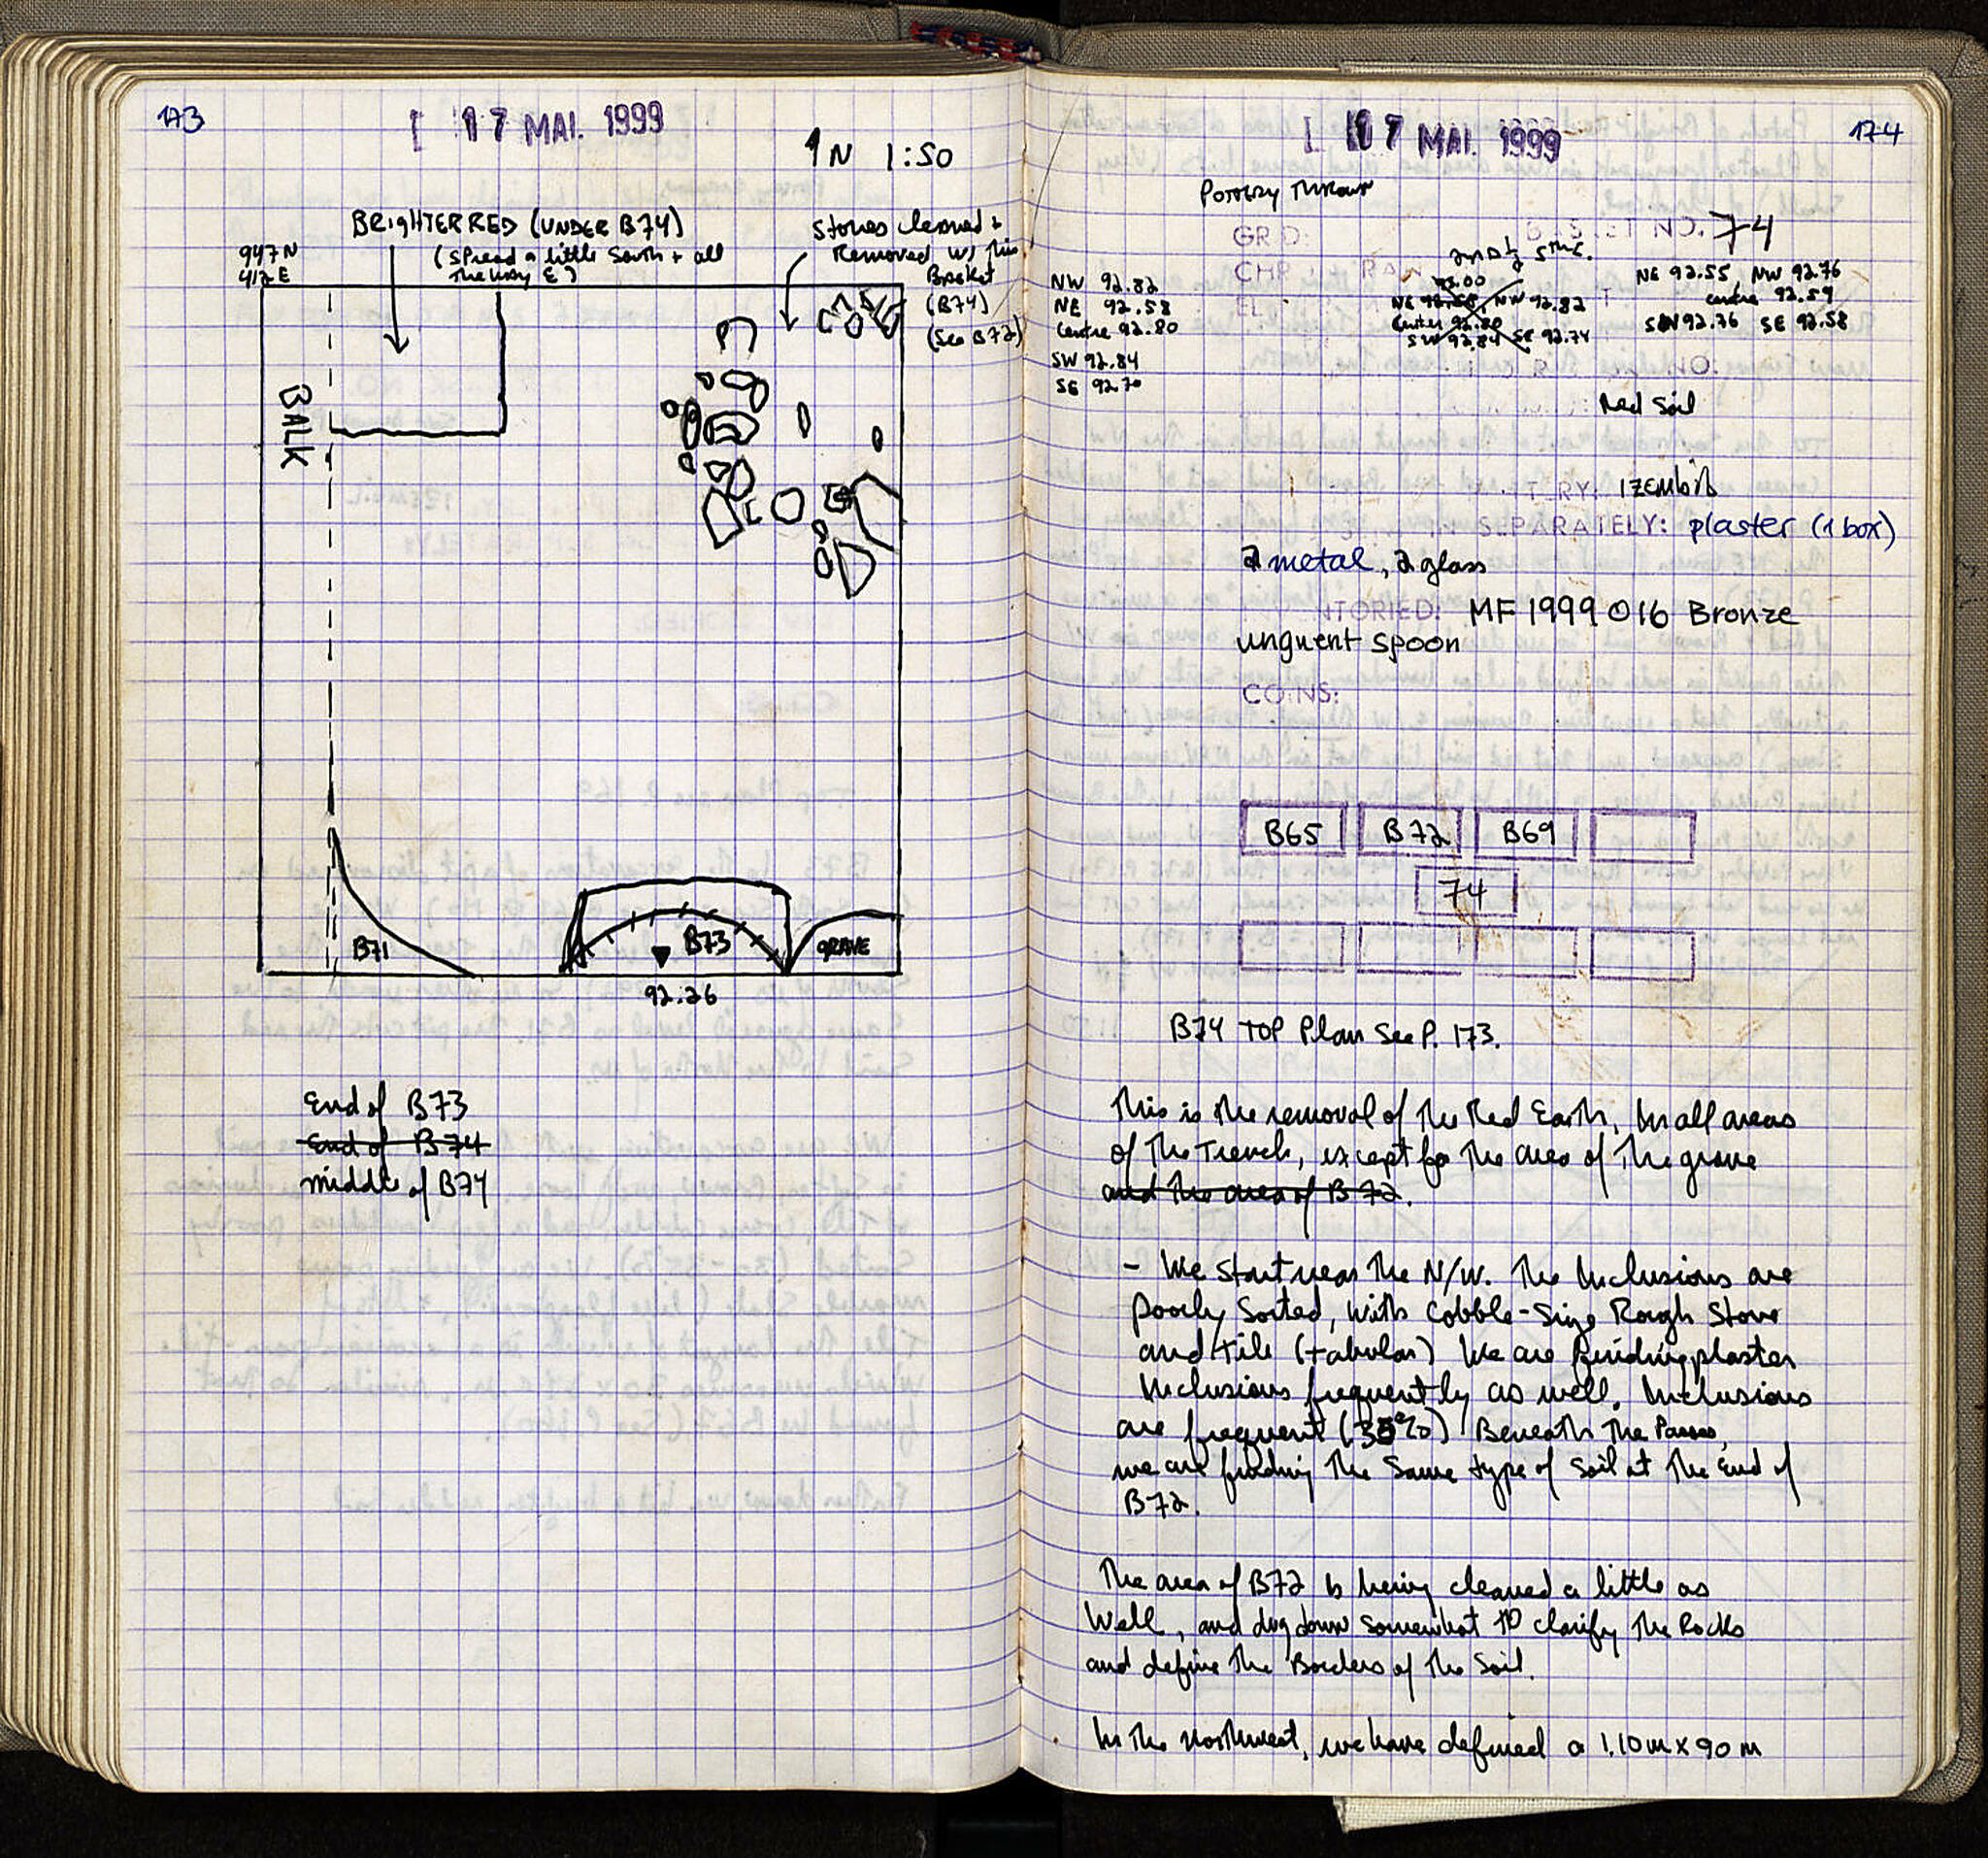 173
17 MAI. 1999
N 1:50
BRIGHTER RED (UNDER B74)
(spread a little South + all
the way E)
947 N
412 E
Stones cleaned +
Removed w/ this
Basket
(B74)
(See B72)
BALK
B71
B73
GRAVE
92.26
End of B73
End of B74
middle of B74
17 MAI. 1999
174
Pottery Thrown
GRID:
BASKET NO. 74
2nd ½ 5th c.
NW 92.82
NE 92.58
Centre 92.80
SW 92.84
SE 92.70
NW 92.82
Center 92.80
SW 92.84 SE 92.74
NE 92.55 NW 92.76
Centre 92.59
SW 92.76 SE 92.58
NO.
Red Soil
1 zembil
SEPARATELY: plaster (1 box)
2 metal, 2 glass
NTORIED: MF 1999 016 Bronze
unguent spoon
COINS:
B65 B72 B69
74
B74 TOP Plan See P. 173.
This is the removal of the Red Earth, in all areas
of the Trench, except for the area of the grave
and the area of B72.
- We start near the N/W. The Inclusions are
poorly sorted, with cobble-size Rough Stone
and tile (tabular) We are finding plaster
Inclusions frequently as well. Inclusions
are frequent (35%) Beneath the
we are finding the same type of soil at the end of
B72.
The area of B72 is being cleaned a little as
well, and dug down somewhat to clarify the Rocks
and define the Borders of the Soil.
In the northwest, we have defined a 1.10 m x 90 m